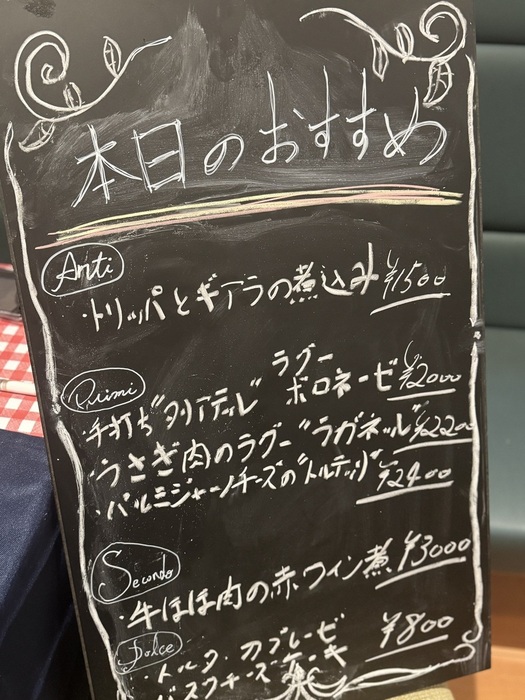 本日のおすすめ
Anti
・トリッパとギアラの煮込み ¥1500
Primi
ラグー
・手打ち"タリアテッレ" ボロネーゼ ¥2000
・うさぎ肉のラグー"ラガネッレ" ¥2200
・パルミジャーノチーズの"トルテッリ" ¥2400
Secondo
・牛ほほ肉の赤ワイン煮 ¥3000
Dolce
・トルタ・カプレーゼ ¥800
・バスクチーズケーキ